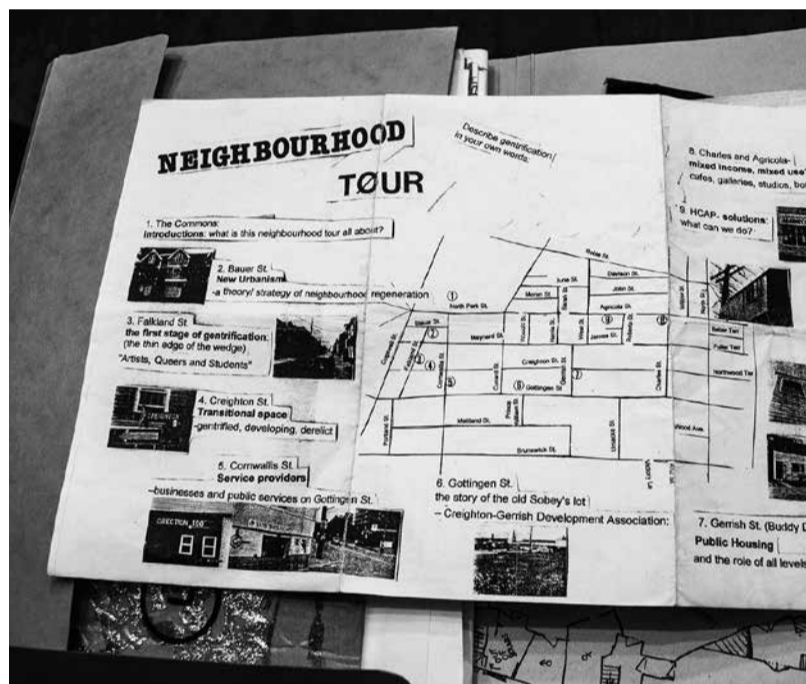 NEIGHBOURHOOD
TØUR
Describe gentrification
in your own words:
1. The Commons:
Introductions: what is this neighbourhood tour all about?
2. Bauer St.
New Urbanism
-a theory/ strategy of neighbourhood regeneration
3. Falkland St.
the first stage of gentrification:
(the thin edge of the wedge)
"Artists, Queers and Students"
4. Creighton St.
Transitional space
-gentrified, developing, derelict
5. Cornwallis St.
Service providers
-businesses and public services on Gottingen St.
6. Gottingen St.
the story of the old Sobey's lot
– Creighton-Gerrish Development Association:
7. Gerrish St. (Buddy D
Public Housing
and the role of all levels
8. Charles and Agricola-
mixed income, mixed use
cafes, galleries, studios, bo
9. HCAP- solutions:
what can we do?
Robie St.
Davison St.
June St.
John St.
Moran St.
Agricola St.
North Park St.
Bauer St.
Maynard St.
James St.
Creighton St.
Gottingen St.
Maitland St.
Brunswick St.
Cogswell St.
Falkland St.
Cornwallis St.
Cunard St.
Portland St.
Gerrish St.
West St.
Charles St.
North St.
Bilby Terr
Fuller Terr
Northwood Ter
Wood Ave.
1
2
3
4
5
6
7
8
9
CREIGHTON
DIRECTION 180